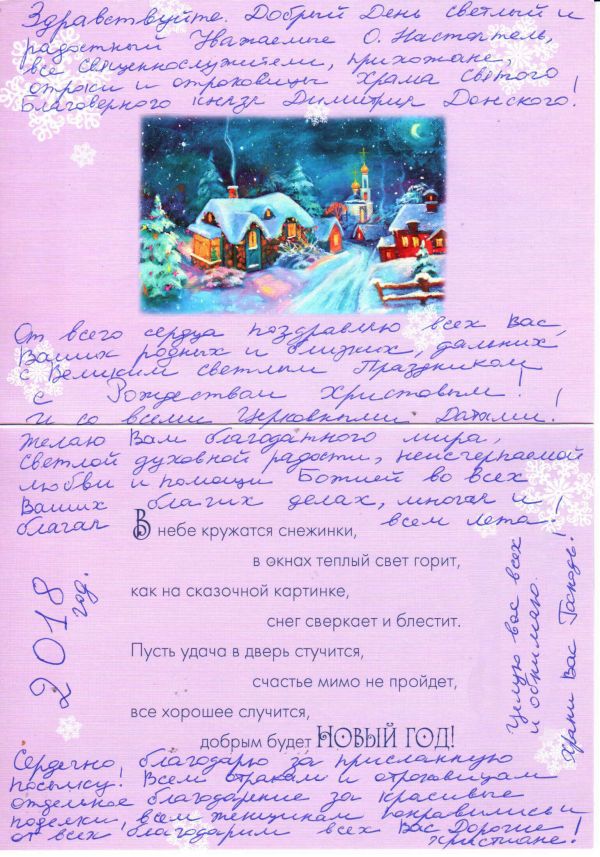 Здравствуйте. Добрый День светлый и
радостный Уважаемые О. Настоятель,
все священнослужители, прихожане,
отроки и отроковицы храма святого
Благоверного князя Димитрия Донского!
От всего сердца поздравляю всех вас,
Ваших родных и близких, дальних
с Великим светлым Праздником
с Рождеством Христовым!
и со всеми Церковными Датами!
Желаю Вам благодатного мира,
светлой духовной радости, неисчерпаемой
любви и помощи Божией во всех
Ваших благих делах, многая и
благая всем лета!
В небе кружатся снежинки,
в окнах теплый свет горит,
как на сказочной картинке,
снег сверкает и блестит.
Пусть удача в дверь стучится,
счастье мимо не пройдет,
все хорошее случится,
добрым будет НОВЫЙ ГОД!
2018
год.
Целую вас всех
и обнимаю.
Храни Вас Господь!
Сердечно благодарю за присланную
посылку! Всем отрокам и отроковицам
отдельное благодарение за красивые
поделки, всем женщинам понравились и
от всех благодарим всех Вас Дорогие
христиане!